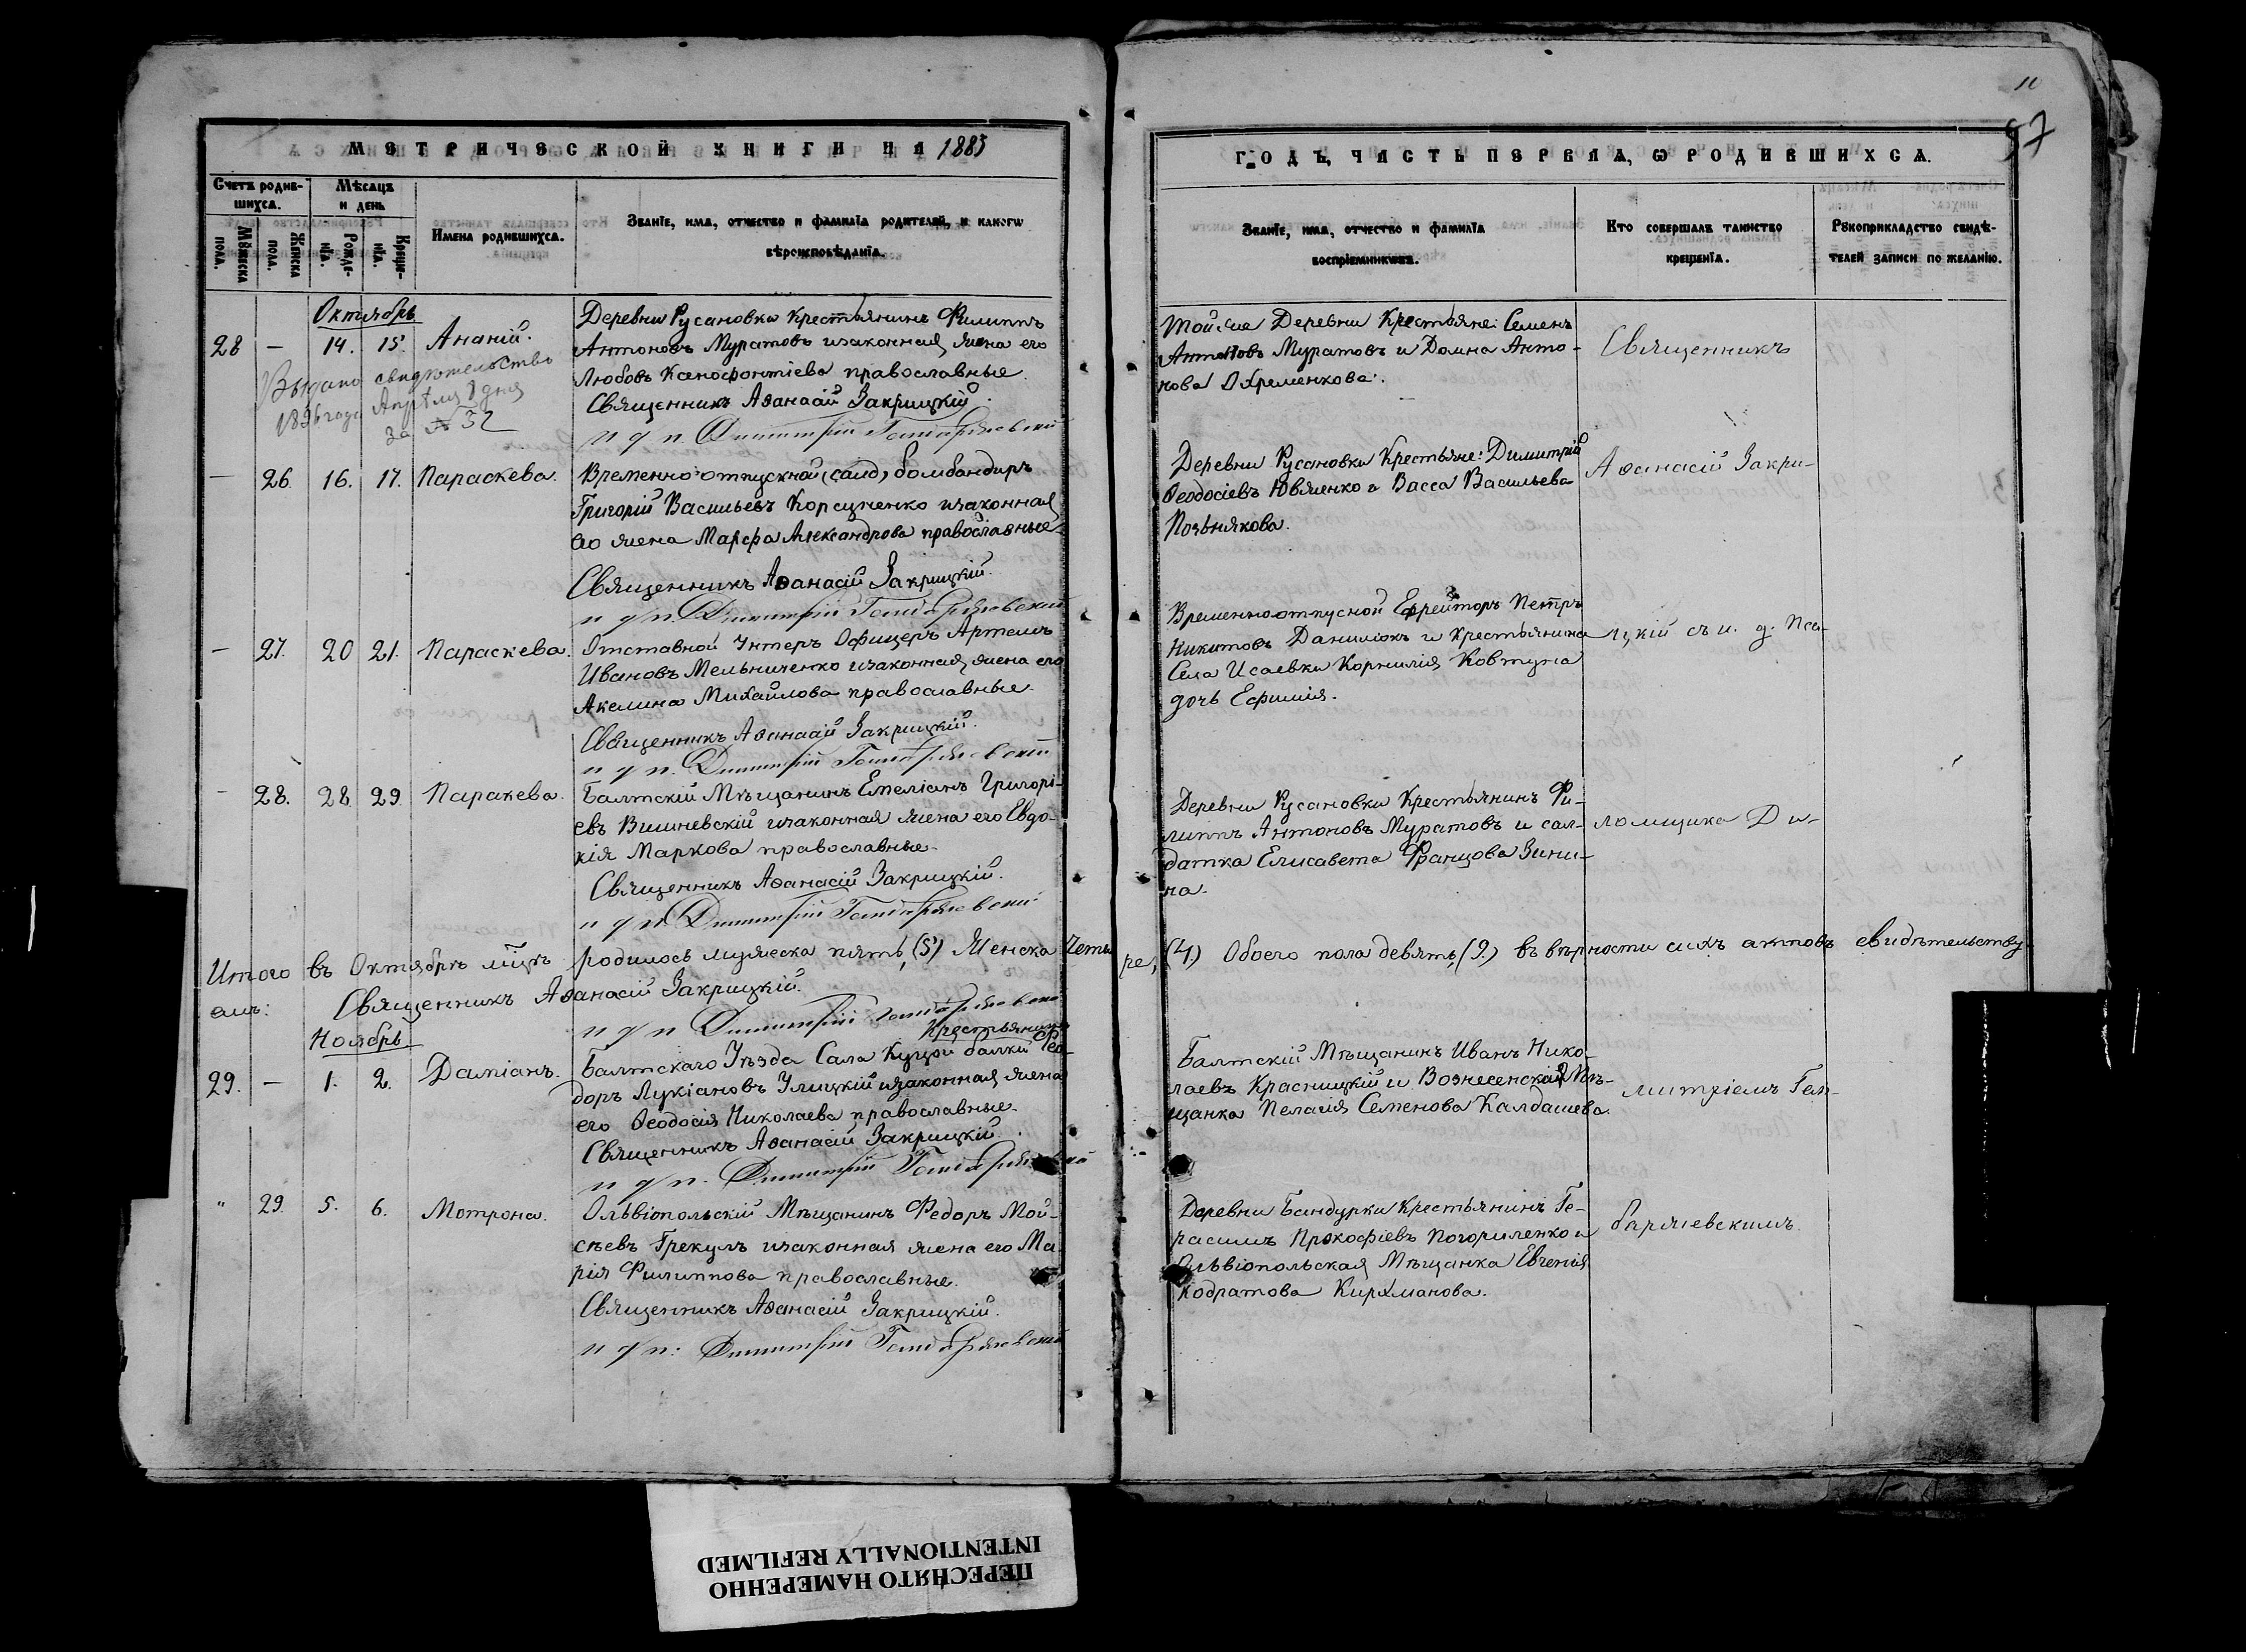 МЕТРИЧЕСКОЙ КНИГИ НА 1883
Счетъ родив-
шихся.
Мѣсяцъ
и день
Мужеска
пола.
Женска
пола.
Рожде-
нія.
Креще-
нія.
Имена родившихся.
Званіе, имя, отчество и фамилія родителей, и какого
вѣроисповѣданія.
Октябрь
28 — 14. 15. Ананій.
Выдано свидѣтельство
1896 года Апрѣля 8 дня
за № 32
Деревни Русановки крестьянинъ Филиппъ
Антоновъ Муратовъ изаконная жена его
Любовь Ксенофонтіева православные.
Священникъ Аѳанасій Закрицкій.
и д п. Димитрій Гембаржевскій
— 26. 16. 17. Параскева.
Временно-отпускной (салд) бомбандиръ
Григорій Васильевъ Корсуненко изаконная
его жена Марфа Александрова православные
Священникъ Аѳанасій Закрицкій.
и д п. Димитрій Гембаржевскій
— 27. 20 21. Параскева.
Отставной Унтеръ Офицеръ Артемъ
Ивановъ Мельниченко изаконная жена его
Акелина Михайлова православные.
Священникъ Аѳанасій Закрицкій.
и д п. Димитрій Гембаржевскій
— 28. 28. 29. Паракева.
Балтскій Мѣщанинъ Емеліанъ Григорі-
евъ Вишневскій изаконная жена его Евдо-
кія Маркова православные.
Священникъ Аѳанасій Закрицкій.
и д п Димитрій Гембаржевскій
Итого въ Октябрѣ мцѣ родилось мужеска пять, (5) Женска Четы
емъ: Священникъ Аѳанасій Закрицкій.
и д п Димитрій Гембаржевскій
Ноябрь
Крестьянинъ
29. — 1. 2. Даміанъ.
Балтскаго Уѣзда Села Куцои балки Фео-
доръ Лукіановъ Улицкій изаконная жена
его Ѳеодосія Николаева православные.
Священникъ Аѳанасій Закрицкій.
и д п. Димитрій Гембаржевскій
" 29. 5. 6. Мотрона.
Ольвіопольскій Мѣщанинъ Федоръ Мой-
сѣевъ Грекулъ изаконная жена его Ма
рія Филиппова православные.
Священникъ Аѳанасій Закрицкій.
и д п: Димитрій Гембаржевскій
10
97
ГОДЪ, ЧАСТЬ ПЕРВАЯ, Ѡ РОДИВШИХСЯ.
Званіе, имя, отчество и фамилія
воспріемниковъ.
Кто совершалъ таинство
крещенія.
Рукоприкладство свидѣ-
телей записи по желанію.
Той же Деревни Крестьяне: Семенъ
Антоновъ Муратовъ и Домна Анто-
нова Охременкова.
Священникъ
Деревни Русановки Крестьяне: Димитрій
Ѳеодосіевъ Ювженко и Васса Васильева
Позьнякова.
Аѳанасій Закри-
Временноотпусной Ефрейторъ Петръ
Никитовъ Данилюкъ и крестьянина
Села Исаевки Корнилія Ковтуна
дочь Ефимія.
цкій съ и. д. Пса-
Деревни Русановки Крестьянинъ Фи-
липпъ Антоновъ Муратовъ и сал-
датка Елисавета Францова Зини-
на.
ломщика Ди-
ре, (4.) Обоего пола девять, (9.) въ вѣрности сихъ актовъ свидѣтельству
Балтскій Мѣщанинъ Иванъ Нико-
лаевъ Красницкій и Вознесенская Мѣ-
щанка Пелагія Семенова Калдашева.
митріемъ Гем-
Деревни Бандурки Крестьянинъ Ге-
расимъ Прокофіевъ Погориленко и
Ольвіопольская Мѣщанка Евгенія
Кодратова Кирхманова.
баржевскимъ.
ПЕРЕСНЯТО НАМЕРЕННО
INTENTIONALLY REFILMED